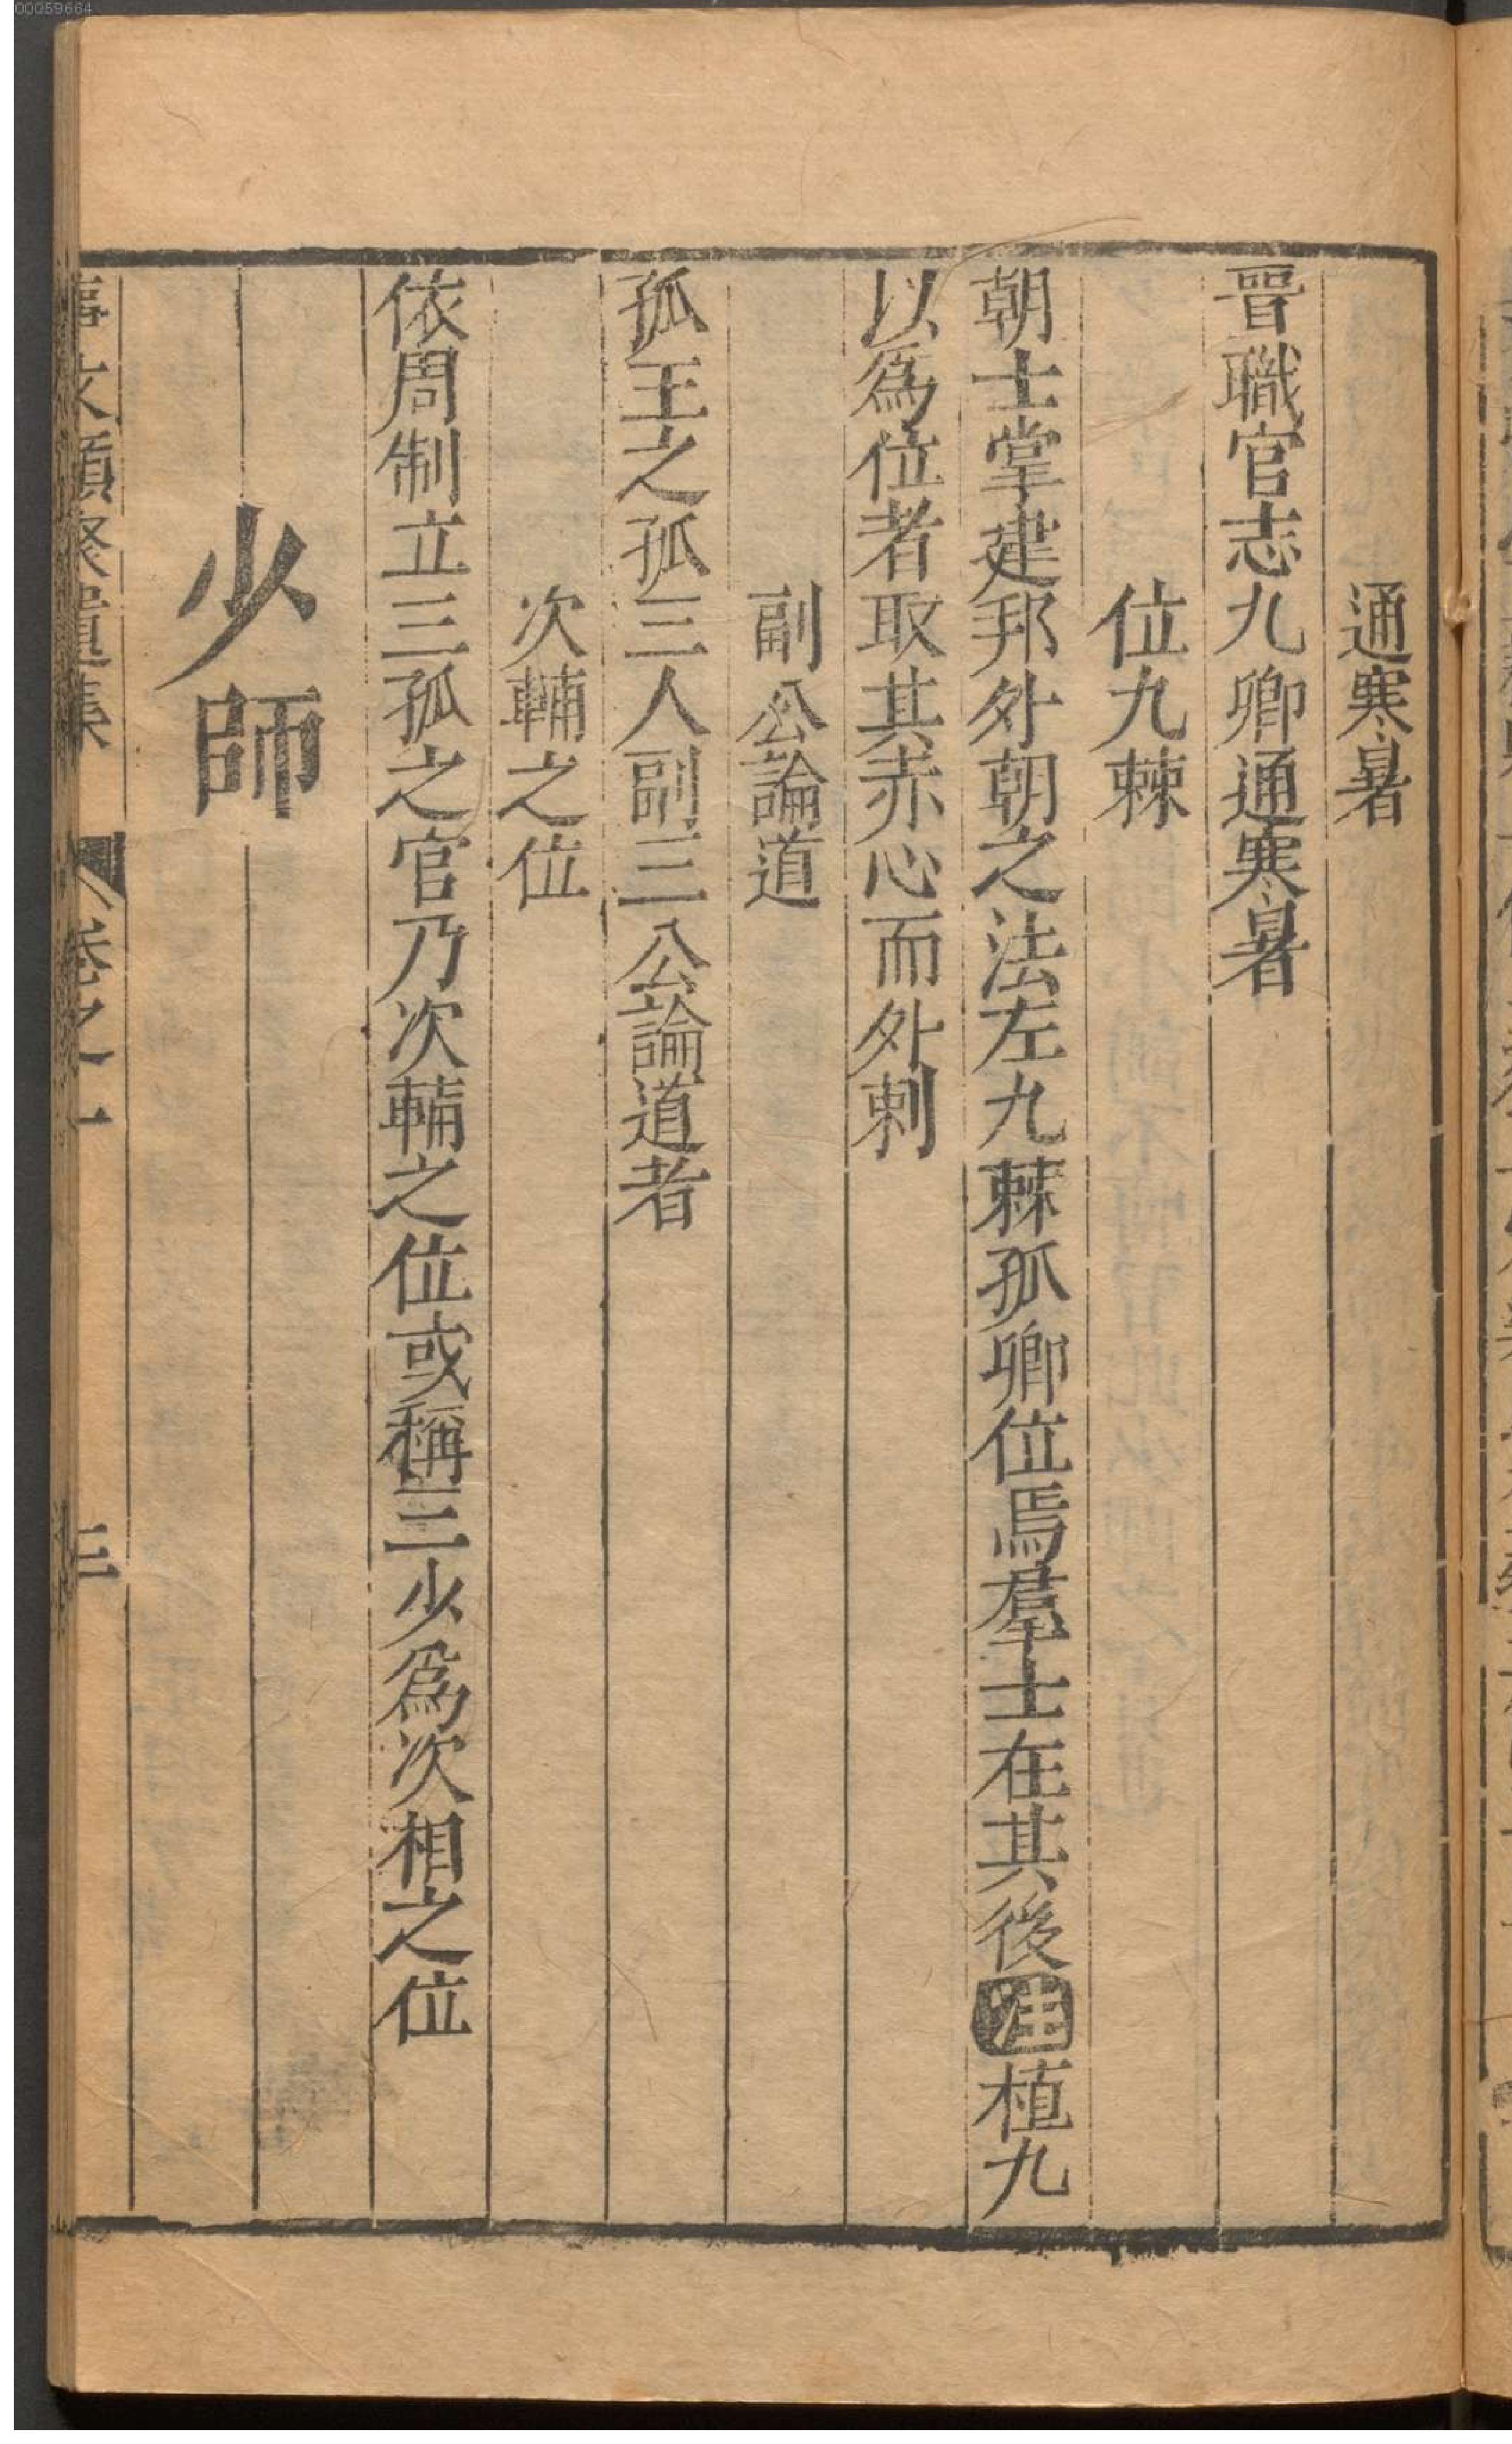 00059664
通寒暑
晋職官志九卿通寒暑
位九棘
朝士掌建邦外朝之法左九棘孤卿位焉羣士在其後注植九
以爲位者取其赤心而外刺
副公論道
孤王之孤三人副三公論道者
次輔之位
依周制立三孤之官乃次輔之位或稱三少爲次相之位
少師
事文類聚遺集 卷之一 三